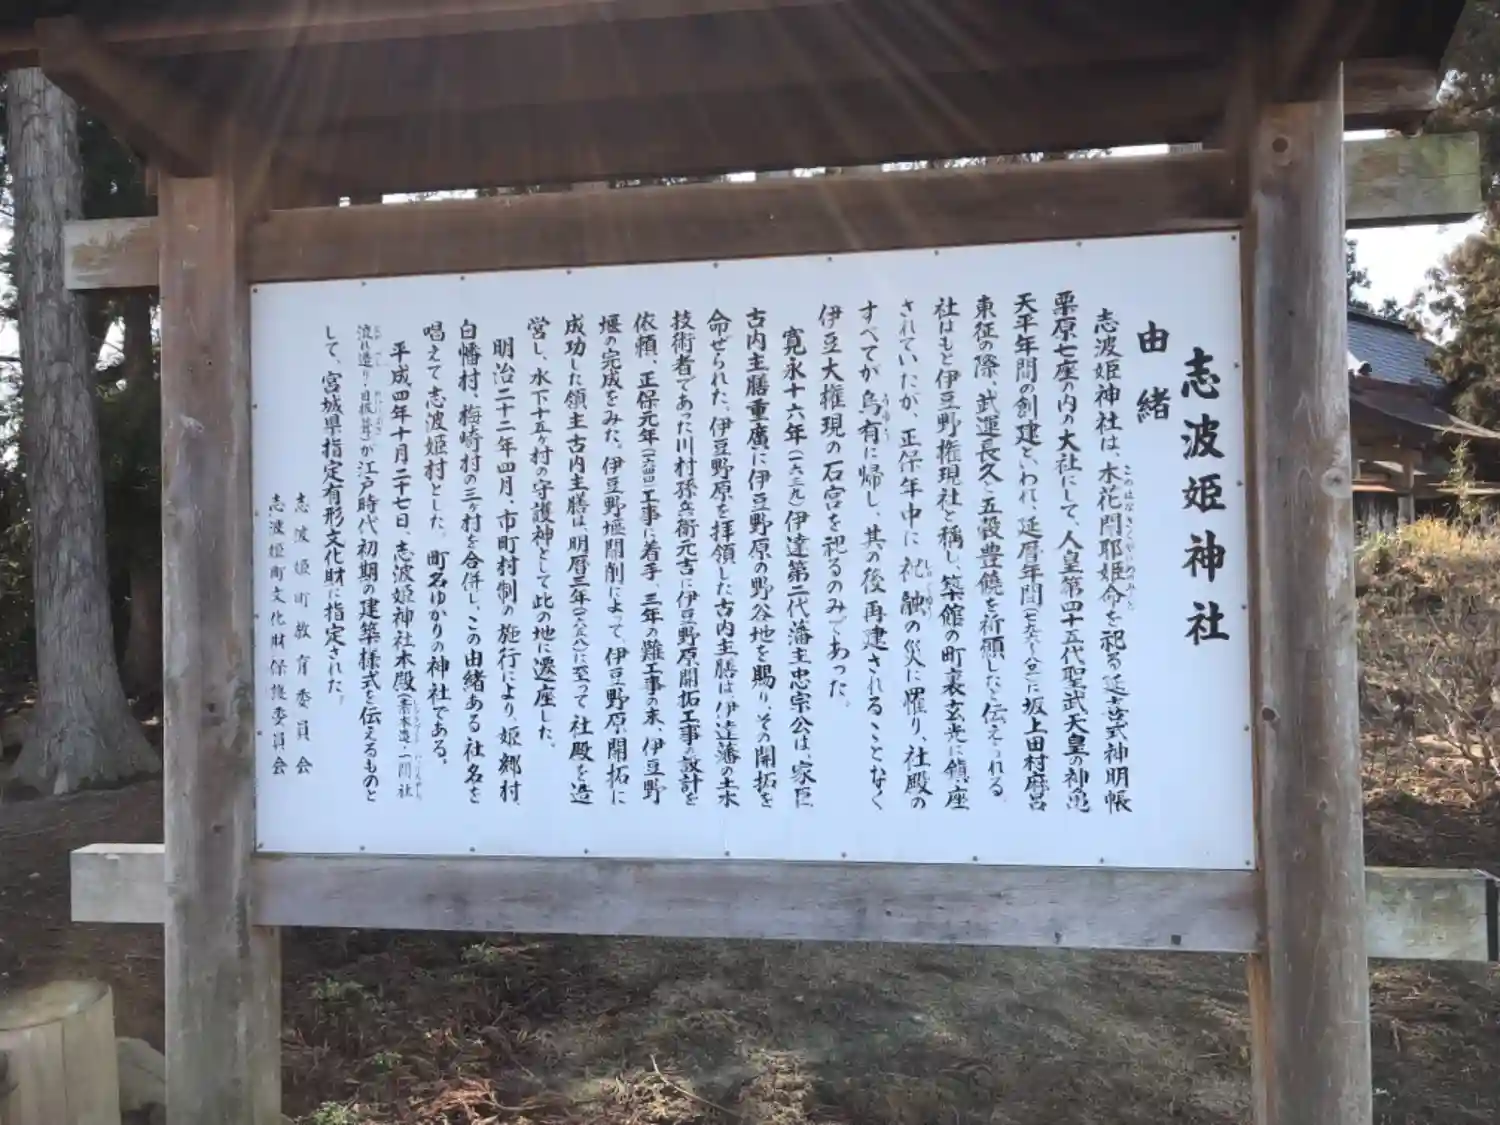 志波姫神社
由緒
志波姫神社は、木花開耶姫命を祀る延喜式神明帳
このはなさくやひめのみこと
栗原七座の内の大社にして、人皇第四十五代聖武天皇の神亀
天平年間の創建といわれ、延暦年間に坂上田村麻呂
東征の際、武運長久・五穀豊饒を祈願したと伝えられる。
社はもと伊豆野権現社と称し、築館の町裏玄光に鎮座
されていたが、正保年中に祝融の災に罹り、社殿の
すべてが烏有に帰し、其の後再建されることなく
うゆう
伊豆大権現の石宮を祀るのみであった。
寛永十六年(一六三九)伊達第二代藩主忠宗公は、家臣
古内主膳重廣に伊豆野原の野谷地を賜り、その開拓を
命ぜられた。伊豆野原を拝領した古内主膳は、伊達藩の土木
技術者であった川村孫兵衛元吉に伊豆野原開拓工事の設計を
依頼、正保元年(一六四四)工事に着手、三年の難工事の末、伊豆野
堰の完成をみた。伊豆野堰開削によって、伊豆野原開拓に
成功した領主古内主膳は、明暦三年に至って社殿を造
営し、水下十五ヶ村の守護神として此の地に遷座した。
明治二十二年四月、市町村制の施行により、姫郷村、
白幡村、梅崎村の三ヶ村を合併し、この由緒ある社名を
唱えて志波姫村とした。町名ゆかりの神社である。
平成四年十月二十七日、志波姫神社本殿(素木造・一間社
流れ造り・目板葺)が江戸時代初期の建築様式を伝えるものと
して、宮城県指定有形文化財に指定された。
志波姫町教育委員会
志波姫町文化財保護委員会